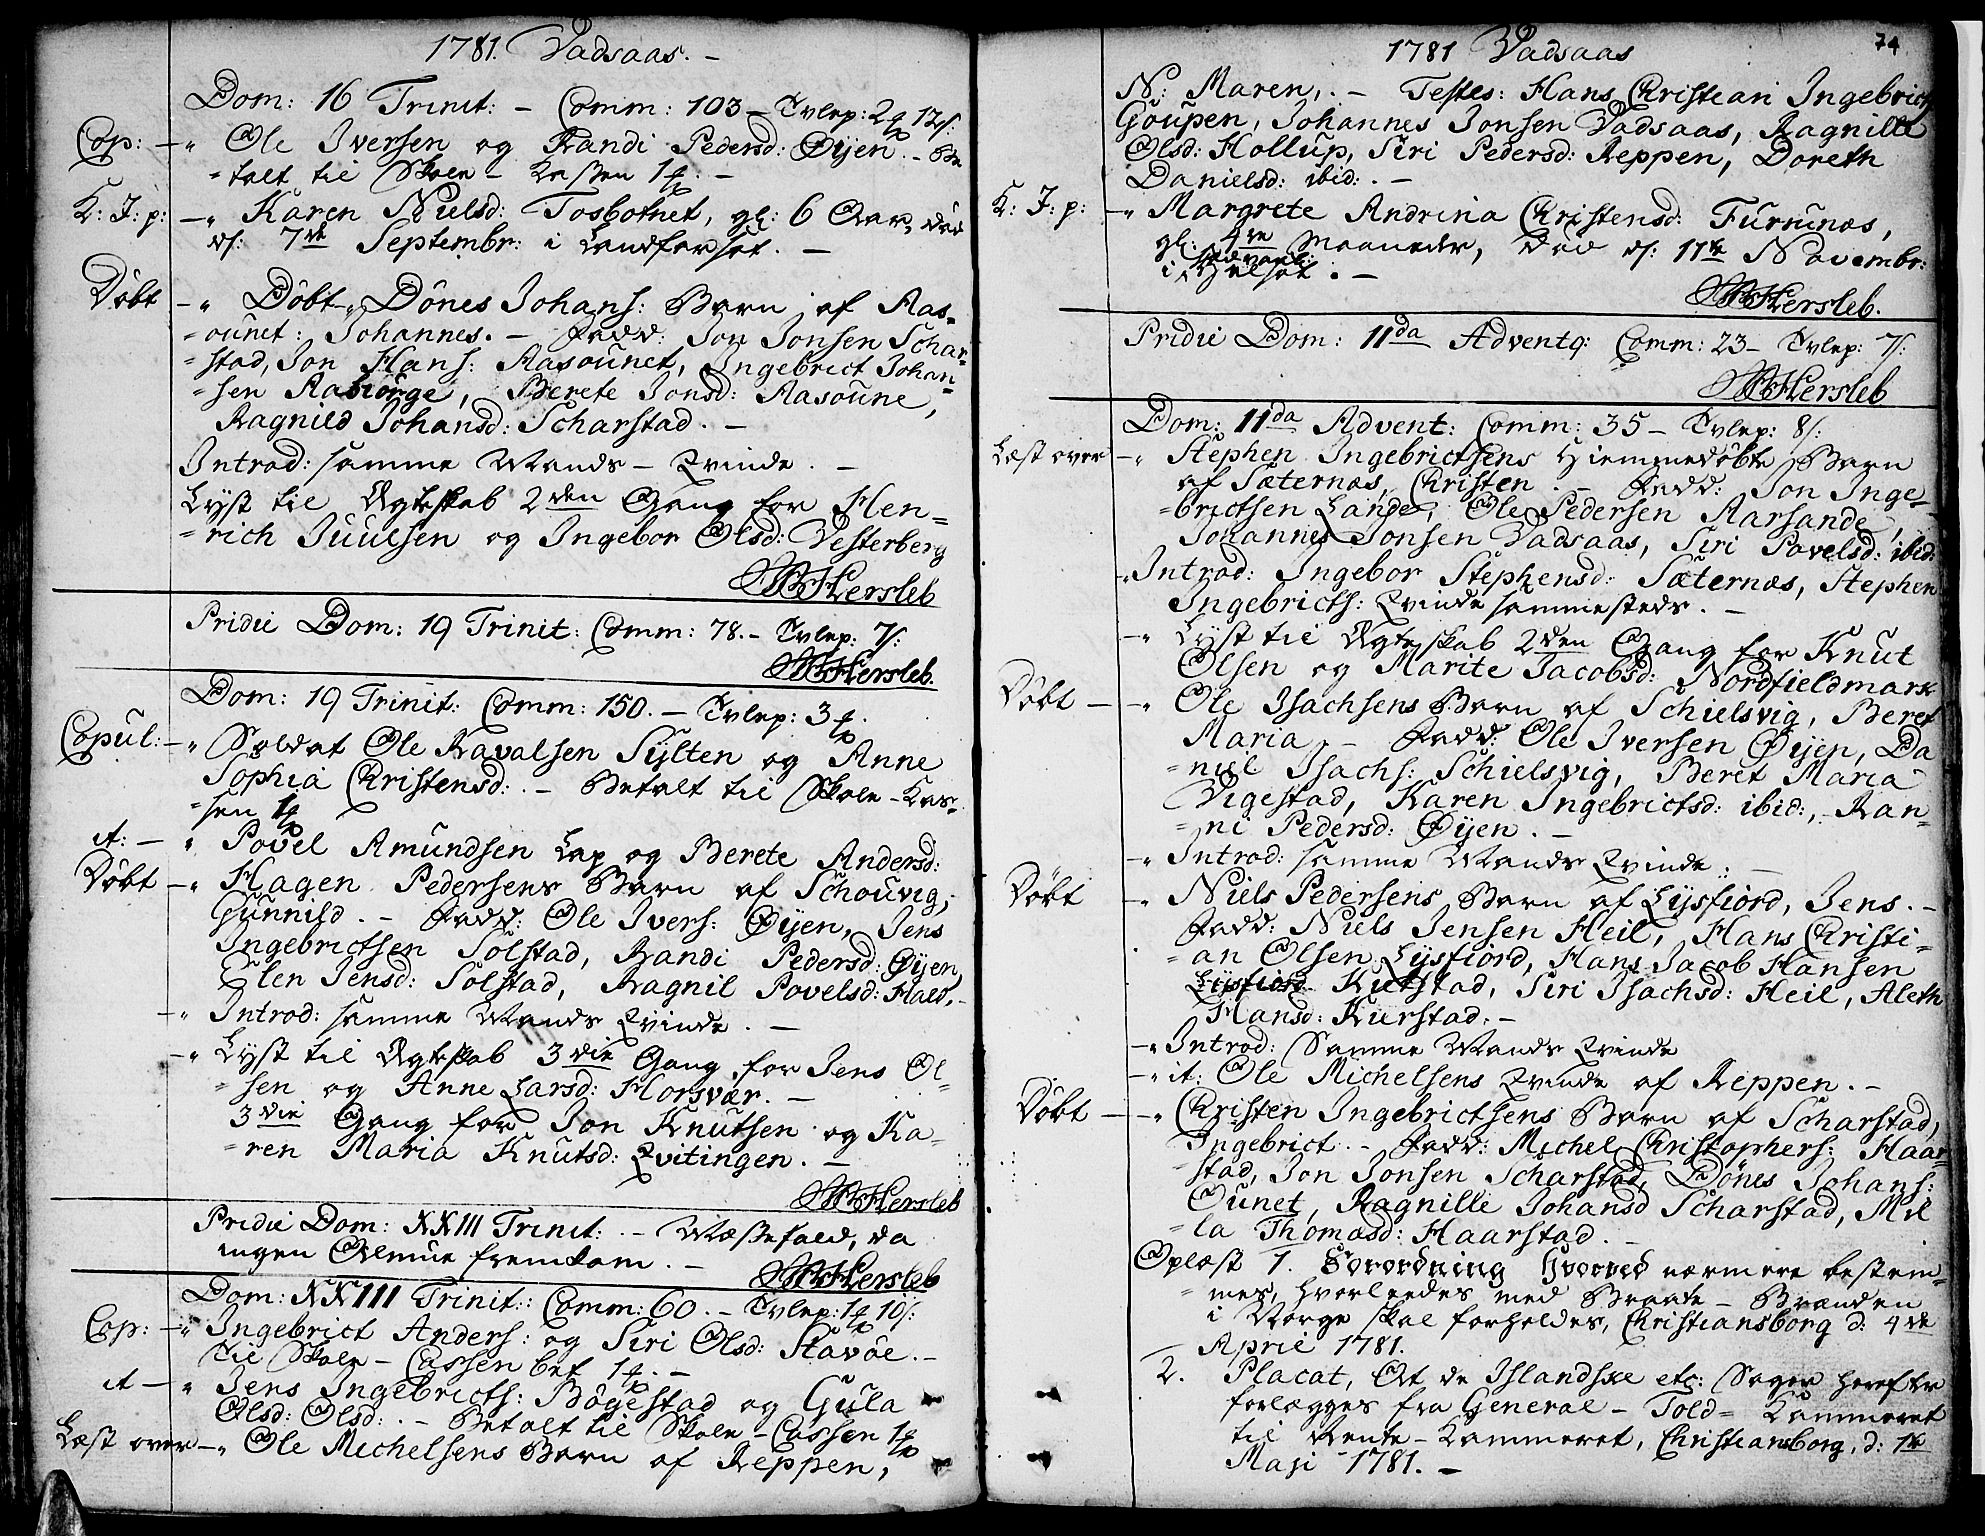 1781. Vadsaas. –
Dom: 16 Trinit: – Comm: 103 – Tvlep: 2 12/:
Cop: – „ Ole Iversen og Randi Pedersd: Øijen. – Be
=talt til Skole – Kassen 1
K: J: p: – „ Karen Nielsd: Tosbotnet, gl: 6 Aar, død
d: 7de Septembr: i Landfarsot. –
Döbt – „ Döbt „ Dönes Johans: Barn af Aas=
=ounet: Johannes. – Fadd: Jon Jonsen Schar=
=stad, Jon Hans: Aasounet, Ingebrict Johan=
=sen Aabiörge, Berete Jonsd: Aasoune,
Ragnild Johansd: Scharstad. –
Introd: samme Mands – Qvinde. –
Lyst til Ægteskab 2den Gang for Hen=
=rich Juulsen og Ingebor Olsd: Vesterberg
Hersleb
Pridie Dom: 19 Trinit: Comm: 78. – Tvlep: 7/:
Hersleb.
Dom: 19 Trinit: Comm: 150. – Tvlep: 3
Copul: – „ Soldat Ole Ravalsen Sylten og Anne
Sophia Christensd: – Betalt til Skole – Kas=
=sen 1
it: – „ Povel Amundsen Lap og Berete Andersd:
Döbt – „ Hagen Pedersens Barn af Schouvig,
Gunnild. – Fadd: Ole Ivers: Øijen, Jens
Ingebrictsen Solstad, Randi Pedersd: Øijen,
Elen Jensd: Solstad, Ragnil Povelsd: Hald. –
– „ Introd: samme Mands Qvinde. –
– „ Lyst til Ægteskab 3die Gang for Jens Ol=
=sen og Anne Larsd: Horsvær. –
3die Gang for Jon Knutsen og Ka=
=ren Maria Knutsd: Qvitingen. –
Hersleb
Pridie Dom: XXIII Trinit: – Messefald, da
ingen Almue fremkom. –
Hersleb
Dom: XXIII Trinit: Comm: 60. – Tvlep: 1 10/:
Cop: – „ Ingebrict Anders: og Siri Olsd: Stavöe. –
Til Skole – Cassen bet 1 –
it – „ Jens Ingebricts: Bögestad og Gula
Olsd: Olsd: – Betalt til Skole – Cassen 1
Læst over – „ Ole Michelsens Barn af Reppen,
1781 Vadsaas
74
N: Maren. – Testes: Hans Christian Ingebricts
Goupen, Johannes Jonsen Vadsaas, Ragnille
Olsd: Hollup, Siri Pedersd: Reppen, Doreth
Danielsd: ibid: –
K: J: p: – „ Margrete Andrina Christensd: Furunæs,
gl: 4re Maaneder, Död d: 11te Novembr:
i Halssot. –
Hersleb.
Pridie Dom: 11da Advent: Comm: 23 – Tvlep: 7/:
Hersleb
Dom: 11da Advent: Comm: 35 – Tvlep: 8/:
Læst over – „ Stephen Ingebrictsens Hiemmedöbte Barn
af Sæternæs, Christen. – Fadd: Jon Inge=
=brictsen Lande, Ole Pedersen Aarsande,
Johannes Jonsen Vadsaas, Siri Povelsd: ibid:
– „ Introd: Ingebor Stephensd: Sæternæs, Stephen
Ingebricts: Qvinde sammesteds. –
– „ Lyst til Ægteskab 2den Gang for Knut
Olsen og Marite Jacobsd: Nordfieldmark
Döbt – „ Ole Isachsens Barn af Schielsvig, Beret
Maria – Fadd: Ole Iversen Øijen, Da
=niel Isachs: Schielsvig, Beret Maria
Vigestad, Karen Ingebrictsd: ibid:, Ran=
=ni Pedersd: Øijen. –
– „ Introd: samme Mands Qvinde: –
Döbt – „ Niels Pedersens Barn af Lysfiord, Jens. –
Fadd: Niels Jensen Heil, Hans Christi=
=an Olsen Lysfiord, Hans Jacob Hansen
Lysfiord Kurstad, Siri Isachsd: Heil, Aleth
Hansd: Kurstad. –
– „ Introd: Samme Mands Qvinde
– „ it: Ole Michelsens Qvinde af Reppen. –
Döbt – „ Christen Ingebrictsens Barn af Scharstad,
Ingebrict – Fadd: Michel Christophers: Haar=
=stad, Jon Jonsen Scharstad, Dönes Johans:
Ounet, Ragnille Johansd Scharstad, Mil
=la Thomasd: Haarstad. –
Oplæst 1. Forordning Hvorved nærmere bestem=
=mes, hvorledes med Braate – Branden
i Norge skal forholdes, Christiansborg d: 4de
April 1781.
2. Placat, At de Islandske etc: Sager herefter
forlægges fra General – Told = Kammeret
til Rente – Kammeret, Christiansborg, d: 1te
Maji 1781. –